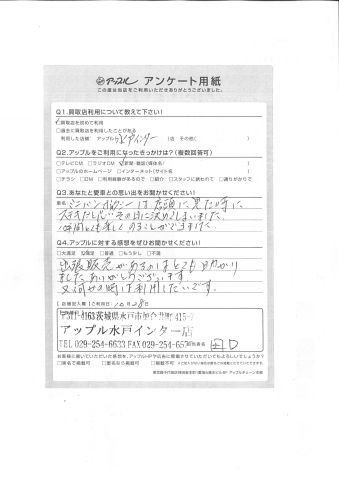 アップル アンケート用紙
この度は当店をご利用いただきありがとうございました。
Q1.買取店利用について教えて下さい!
買取店を初めて利用
□過去に買取店を利用したことがある
利用した店舗: アップル 店 その他( )
Q2.アップルをご利用になったきっかけは?(複数回答可)
□テレビCM □ラジオCM 新聞・雑誌(媒体名/ )
□アップルのホームページ □インターネット(サイト名/ )
□チラシ □DM □利用経験があるので □紹介 □スタッフに誘われて □通りがかりで
Q3.あなたと愛車との思い出をお聞かせください!
車名: は店頭に見た時に
その日に決めてしまいました。
仲間とも楽しくのることができました。
Q4.アップルに対する感想をぜひお聞かせください!
□大満足 満足 □普通 □もう少し □不満
出張販売があるのはとても助かり
ましたありがとうございます
又何せの時は利用したいです。
【店舗記入欄】ご利用日: 10月28日
4163茨城県水戸市加倉井町415-
アップル水戸インター店
TEL 029-254-6633 FAX 029-254-65
お客様に書いていただいた感想を、アップルHPや広告に掲載させていただいてもよろしいでしょうか?
□実名で掲載可 □匿名なら掲載可 □掲載不可